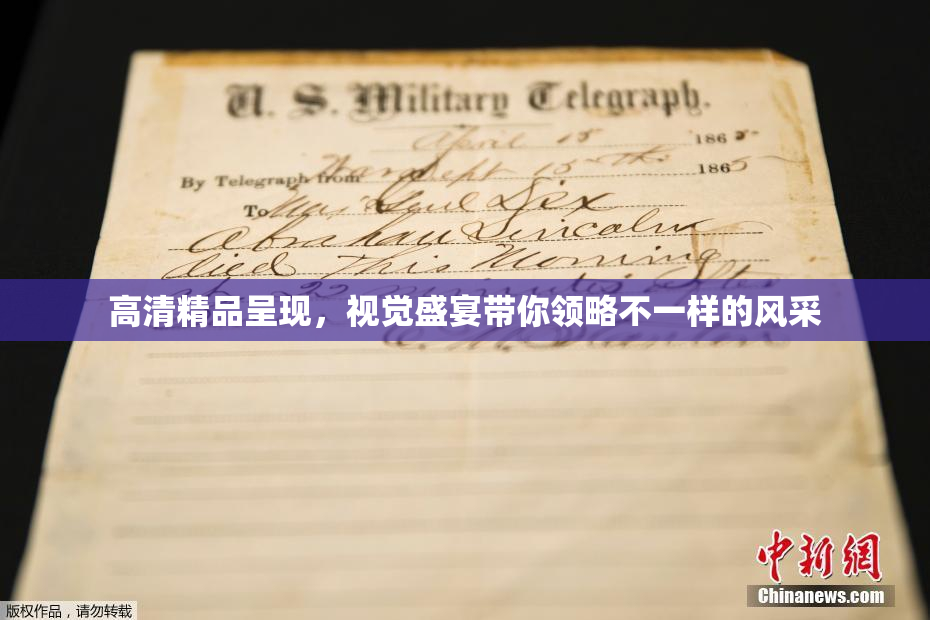 U. S. Military Telegraph.
April 15 1865
By Telegraph from War Dept 15th 1865
To Maj Genl Dix
Abraham Lincoln
died This Morning
at 22 minutes after
高清精品呈现，视觉盛宴带你领略不一样的风采
E. M. Stanton
中新網
Chinanews.com
版权作品，请勿转载